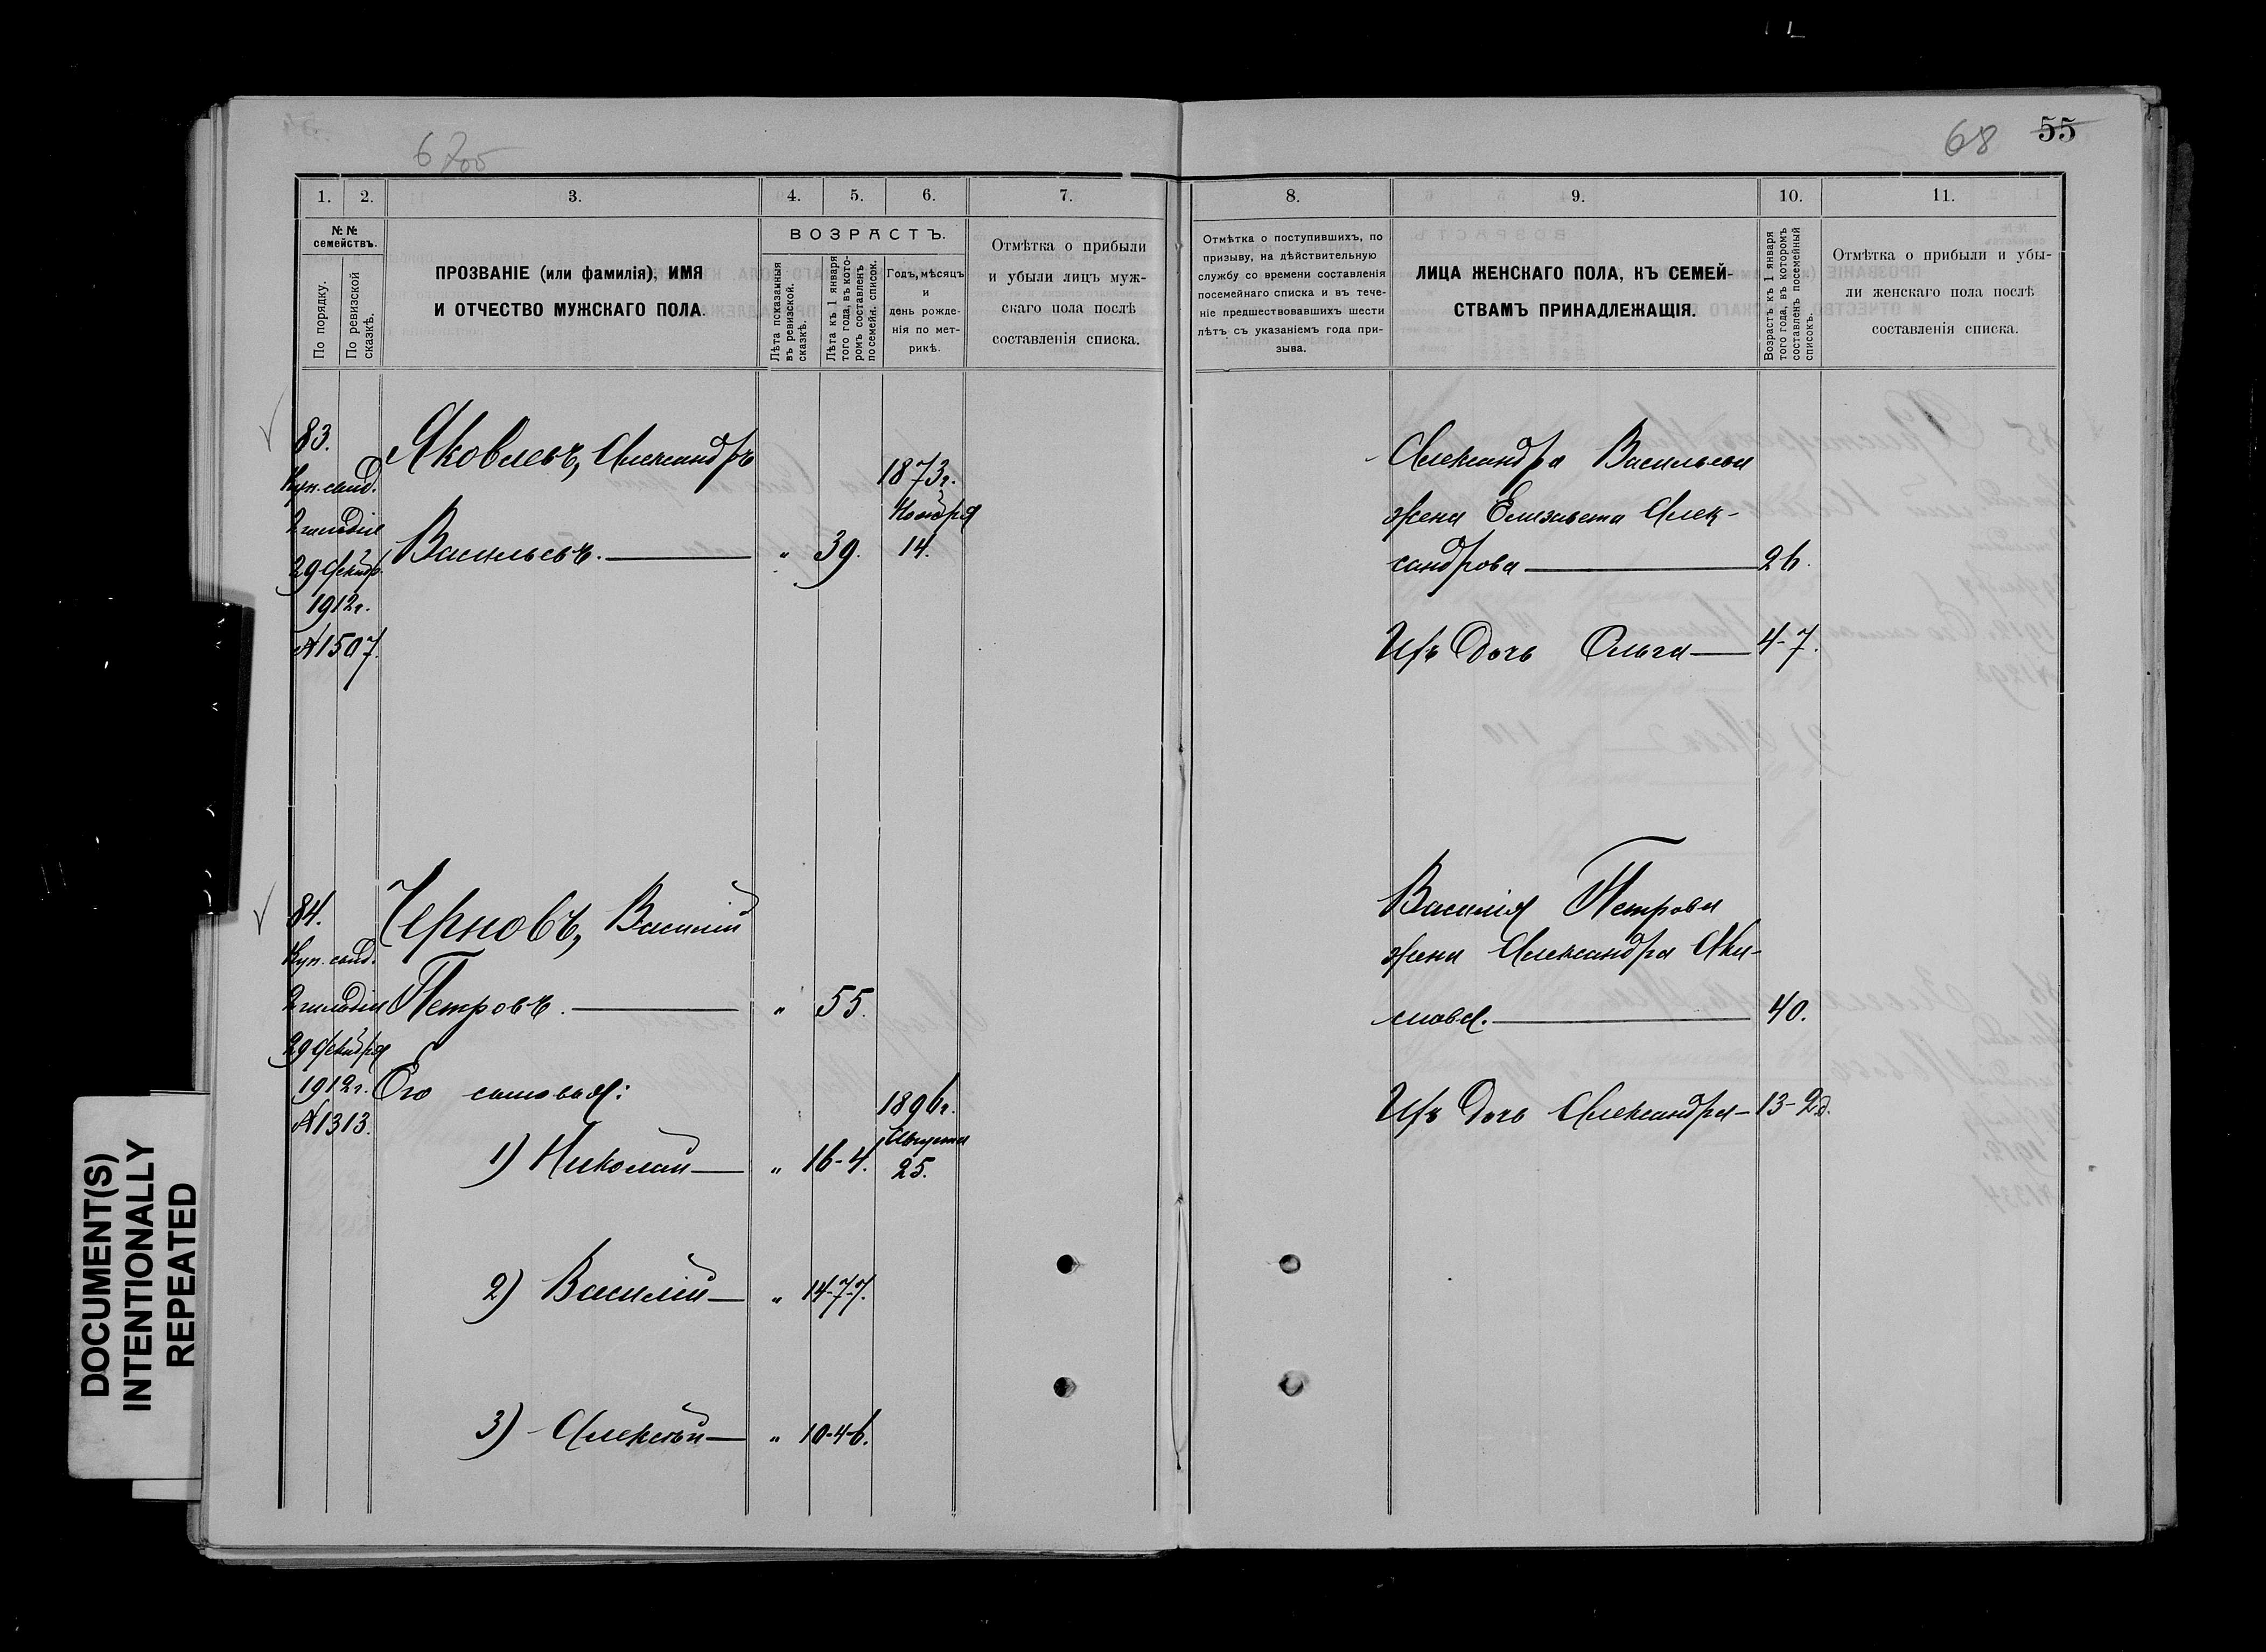 6700
68 55
1. 2. 3. 4. 5. 6. 7.
8. 9. 10. 11.
№№ семействъ.
По порядку.
По ревизской сказкѣ.
ПРОЗВАНІЕ (или фамилія), ИМЯ
И ОТЧЕСТВО МУЖСКАГО ПОЛА.
ВОЗРАСТЪ.
Лѣта показанныя
въ ревизской.
сказкѣ.
Лѣта къ 1 января
того года, въ кото-
ромъ составленъ
посемейн. список.
Годъ, мѣсяцъ
и
день рожде-
нія по мет-
рикѣ.
Отмѣтка о прибыли
и убыли лицъ муж-
скаго пола послѣ
составленія списка.
Отмѣтка о поступившихъ, по
призыву, на дѣйствительную
службу со времени составленія
посемейнаго списка и въ тече-
ніе предшествовавшихъ шести
лѣтъ съ указаніемъ года при-
зыва.
ЛИЦА ЖЕНСКАГО ПОЛА, КЪ СЕМЕЙ-
СТВАМЪ ПРИНАДЛЕЖАЩІЯ.
Возрастъ къ 1 января
того года, въ которомъ
составленъ посемейный
списокъ.
Отмѣтка о прибыли и убы-
ли женскаго пола послѣ
составленія списка.
83.
Куп. свид.
2 гильдіи
29 Декабр.
1912 г.
№ 1507.
Яковлевъ, Александръ
Васильевъ. — „ 39.
1873 г.
Ноября
14.
Александра Васильева
жена Елизавета Алек-
сандрова — 26.
Ихъ дочь Ольга — 4-7.
84.
Куп. свид.
2 гильдіи
29 Декабря
1912 г.
№ 1313.
Черновъ, Василій
Петровъ. — „ 55.
Его сыновья:
1) Николай — „ 16-4.
1896 г.
Августа
25.
2) Василій — „ 14-7-7.
3) Алексѣй — „ 10-4-6.
Василія Петрова
жена Александра Яки-
мова. — 40.
Ихъ дочь Александра — 13-2д.
DOCUMENT(S)
INTENTIONALLY
REPEATED